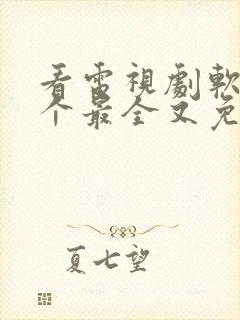 看電視劇軟
个最全又免
夏七望